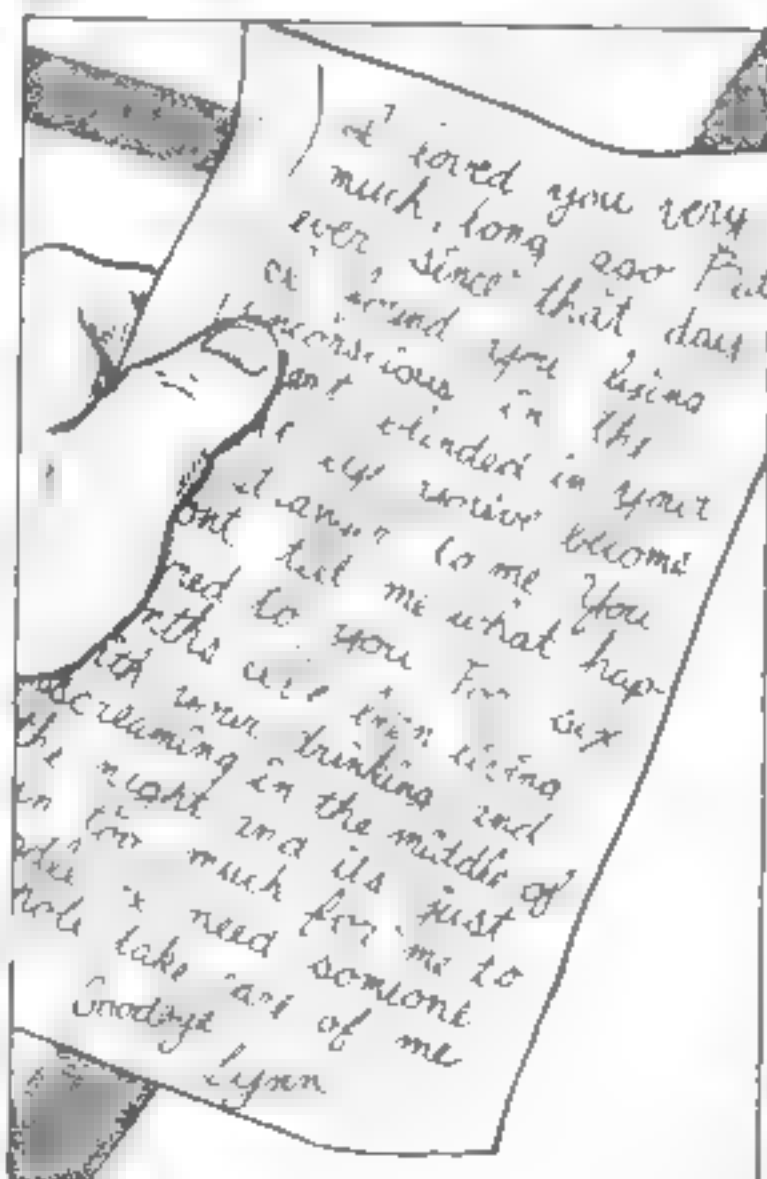 I loved you very
much, long ago But
ever since that day
found you lying
unconscious in the
blinded in your
become
to me You
ont tell me what hap-
red to you For six
nths been living
your drinking and
screaming in the middle of
the night and its just
too much for me to
need someone
take care of me
Goodbye
Lynn